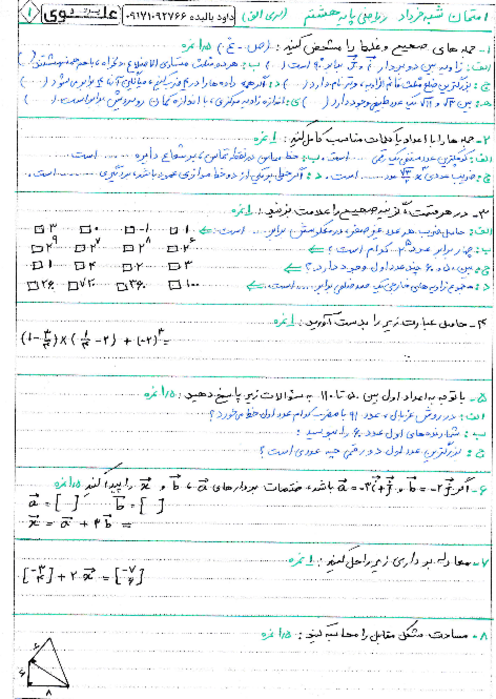 امتحان شبه خرداد ریاضی پایه هشتم (سری الف) داود بالیده ۰۹۱۷۱۰۹۲۷۶۶ علوی ۱
۱- جمله های صحیح و غلط را مشخص کنید: (ص - غ) ۱/۵ نمره
الف: زاویه بین دو بردار i و j برابر ۹۰° است ( ) ب: هر دو مثلث متساوی الاضلاع دلخواه، با هم همنهشتند ( )
ج: بزرگترین ضلع مثلث قائم الزاویه، وتر نام دارد ( ) د: اگر همه داده ها را در هم ضرب کنیم، میانگین آنها نیز برابر می شود ( )
ه: بین √۳ و √۱۷ عدد طبیعی وجود دارد ( ) ی: اندازه زاویه مرکزی، با اندازه کمان روبرویش برابر است ( )
۲- جمله ها را با اعداد یا کلمات مناسب کامل کنید: ۱ نمره
الف: کوچکترین عدد منفی یک رقمی ...... است. ب: خط مماس در نقطه تماس، بر شعاع دایره ...... است.
ج: ضریب عددی ...... عدد ...... است. د: اگر خطی بر یکی از دو خط موازی عمود باشد، بر دیگری ...... است.
۳- در هر قسمت گزینه صحیح را علامت بزنید: ۱ نمره
الف: حاصل ضرب هر عدد غیر صفر، در معکوسش برابر ..... است: ⇐ ۱ □ -۱ □ ۰ □ ۳ □
ب: چهار برابر عدد ... کدام است؟ ⇐ ۲^۶ □ ۲^۸ □ ۲^۷ □ ۲^۹ □
ج: بین ۵۰ و ۶۰ چند عدد اول وجود دارد؟ ⇐ ۳ □ ۲ □ ۴ □ ۱ □
د: مجموع زاویه های خارجی یک صد ضلعی برابر ..... است. ⇐ ۱۰۰ □ ۳۶۰ □ ۷۲۰ □ ۲۶۰ □
۴- حاصل عبارت زیر را بدست آورید: ۱ نمره
۵- با توجه به اعداد اول بین ۵۰ تا ۱۱۰ به سؤالات زیر پاسخ دهید: ۱/۵ نمره
الف: در روش غربال، عدد ۹۱ با مضرب کدام عدد اول خط می خورد؟
ب: شمارنده های اول عدد ۶۰ را بنویسید:
ج: بزرگترین عدد اول دو رقمی چه عددی است؟
۶- اگر b = -۲j و a = -۳i + j باشد، مختصات بردارهای a، b و x را پیدا کنید. ۱/۵ نمره
a = [ ] b = [ ]
x = a + ۳b =
۷- معادله برداری زیر را حل کنید: ۱ نمره
۸- مساحت شکل مقابل را محاسبه کنید: ۱/۵ نمره
۶
۶
۸